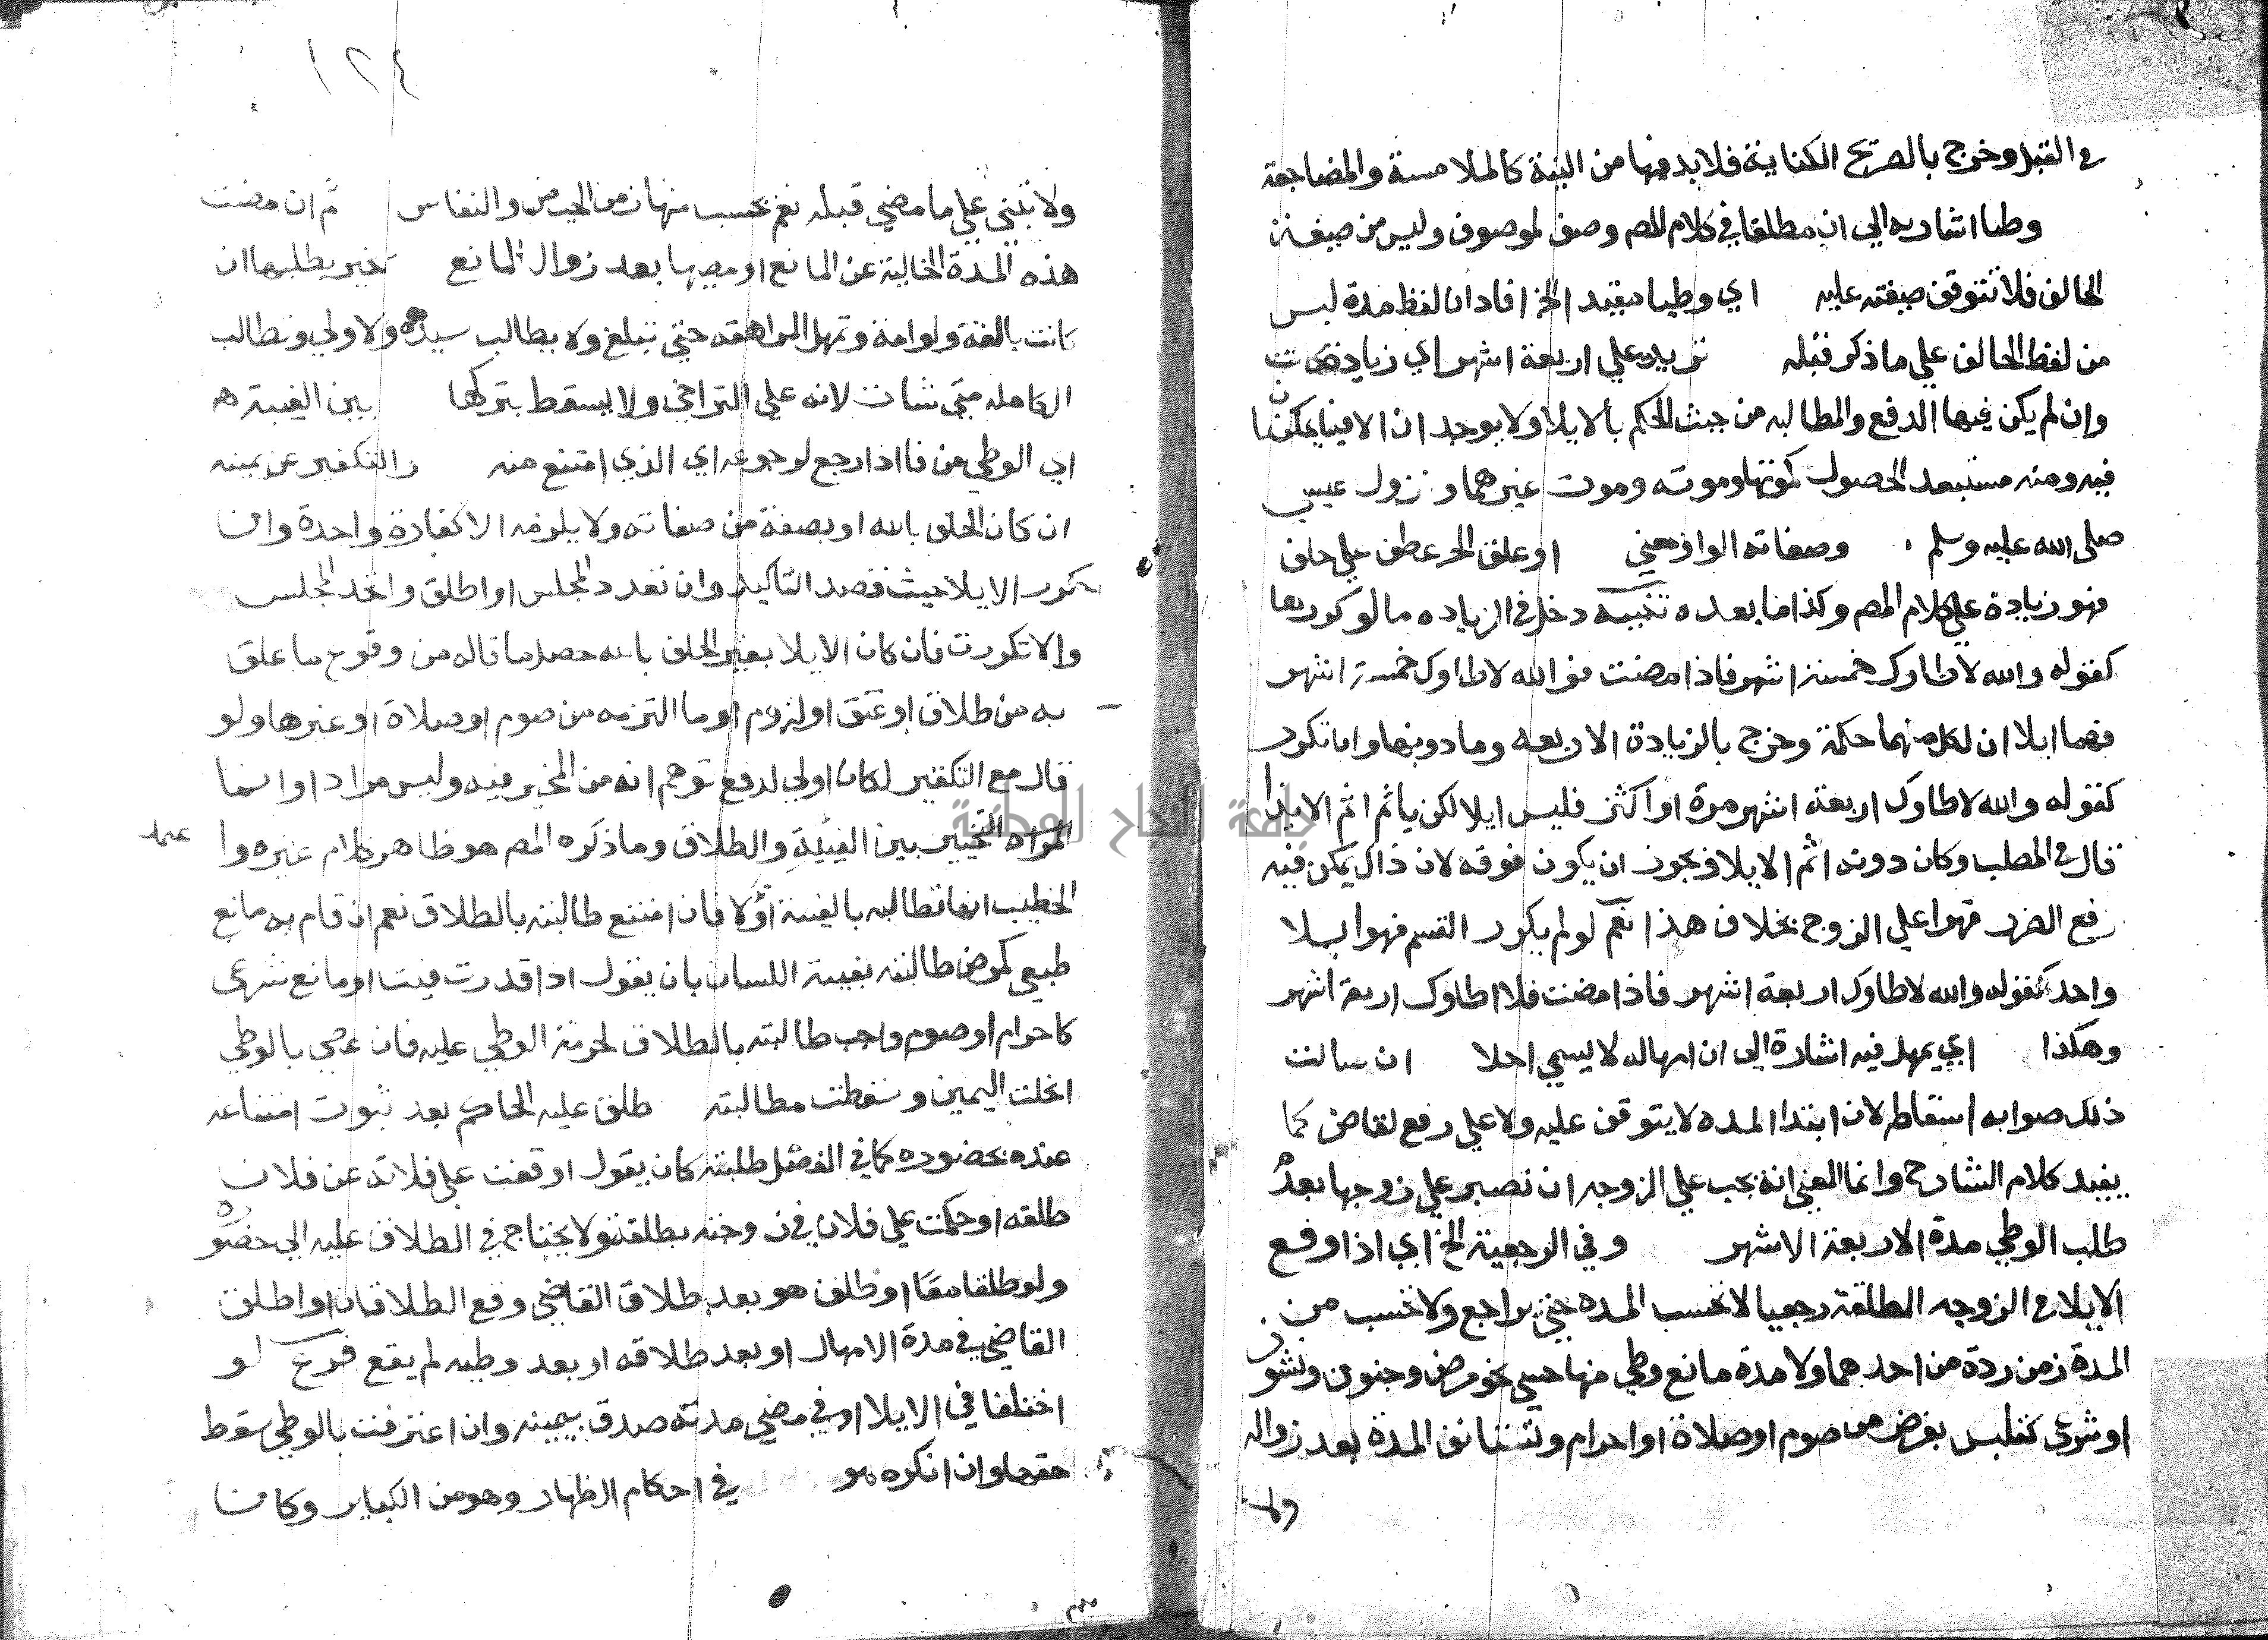 في القبل وخرج بالصريح الكناية فلا بد فيها من النية كالملامسة والمضاجعة
وطيا اشار به الى ان مطلقا في كلام المص وصف لموصوف وليس من صيغة
الحالف فلا تتوقف صيغته عليه اي وطيا مقيد الخ افاد ان لفظ مدة ليس
من لفظ الحالف على ما ذكر قبله تزيد على اربعة اشهر اي زيادة كانت
وان لم يكن فيها الدفع والمطالبه من حيث الحكم بالايلا ولا يوجد ان الا فيما يمكن
فيه ومنه مستبعد الحصول كموتها وموته وموت غيرهما ونزول عيسى
صلى الله عليه وسلم وصفاته الواو بمعنى او علق الخ عطف على حلف
فهو زيادة على كلام المص وكذا ما بعده تنبيه دخل في الزياده ما لو كررها
كقوله والله لا اطاوك خمسة اشهر فاذا مضت فوالله لا اطاوك خمسة اشهر
فهما ايلا ان لكل منهما حكمة وخرج بالزيادة الاربعه وما دونها وان تكرر
كقوله والله لا اطاوك اربعة اشهر مرة او اكثر فليس ايلا لكن ياثم اثم الايذا
قال في المطلب وكان دونه اثم الايلا ويجوز ان يكون فوقه لان ذاك يمكن فيه
رفع الضرر قهرا على الزوج بخلاف هذا نعم لو لم يكرر القسم فهو ايلا
واحد كقوله والله لا اطاوك اربعة اشهر فاذا مضت فلا اطاوك اربعة اشهر
وهكذا اي يمهل فيه اشارة الى ان امهاله لا يسمى اجلا ان سالت
ذلك صوابه اسقاطه لان ابتدا المده لا يتوقف عليه ولا على رفع لقاض كما
يفيد كلام الشارح وانما المعنى انه يجب على الزوجه ان تصبر على زوجها بعد
طلب الوطي مدة الاربعة الاشهر وفي الرجعية الخ اي اذا وقع
الايلا في الزوجه المطلقة رجعيا لا تحسب المده حتى يراجع ولا تحسب من
المدة زمن ردة من احدهما ولا مدة مانع وطي منها حسي نحو مرض وجنون ونشوز
او شرعي كتلبس بفرض من صوم او صلاة او احرام وتستانف المدة بعد زواله
ولا
١٢٤
ولا تبني على ما مضى قبله نعم يحسب منها زمن الحيض والنفاس ثم ان مضت
هذه المدة الخالية عن المانع او مضيها بعد زوال المانع خير بطلبها ان
كانت بالغة ولو امة وتمهل المراهقه حتى تبلغ ولا يطالب سيدها ولا ولي وتطالب
الكامله متى شات لانه على التراخي ولا يسقط بتركها بين الفيئة هـ
اي الوطي من فا اذا رجع لرجوعه اي الذي امتنع منه والتكفير عن يمينه
ان كان الحلف بالله او بصفة من صفاته ولا يلزمه الا كفارة واحدة وان
كرر الايلا حيث قصد التاكيد وان تعدد المجلس او اطلق واتحد المجلس
والا تكررت فان كان الايلا بغير الحلف بالله حصل ما قاله من وقوع ما علق
به من طلاق او عتق او لزوم او ما التزمه من صوم او صلاة او غيرها ولو
قال مع التكفير لكان اولى لدفع توهم انه من المخير فيه وليس مرادا وانما
المراد التخيير بين الفيئة والطلاق وما ذكره المص هو ظاهر كلام غيره وا
الخطيب انها تطالبه بالفيئة اولا فان امتنع طالبته بالطلاق نعم ان قام به مانع
طبعي كمرض طالبته بفيئة اللسان بان يقول اذا قدرت فيت او مانع شرعي
كاحرام او صوم واجب طالبته بالطلاق لحرمة الوطي عليه فان عصى بالوطي
انحلت اليمين وسقطت مطالبته طلق عليه الحاكم بعد ثبوت امتناعه
عنده بحضوره كما في العضل طلبته كان يقول اوقعت على فلانة عن فلان
طلقه او حكمت على فلان في زوجته بطلقة ولا يحتاج في الطلاق عليه الى حضوره
ولو طلقا معا او طلق هو بعد طلاق القاضي وقع الطلاقان او اطلق
القاضي في مدة الامهال او بعد طلاقه او بعد وطيه لم يقع فرع لو
اختلفا في الايلا او في مضي مدته صدق بيمينه وان اعترفت بالوطي سقط
حقها وان انكره هو في احكام الظهار وهو من الكبائر وكان
جامعة النجاح الوطنية